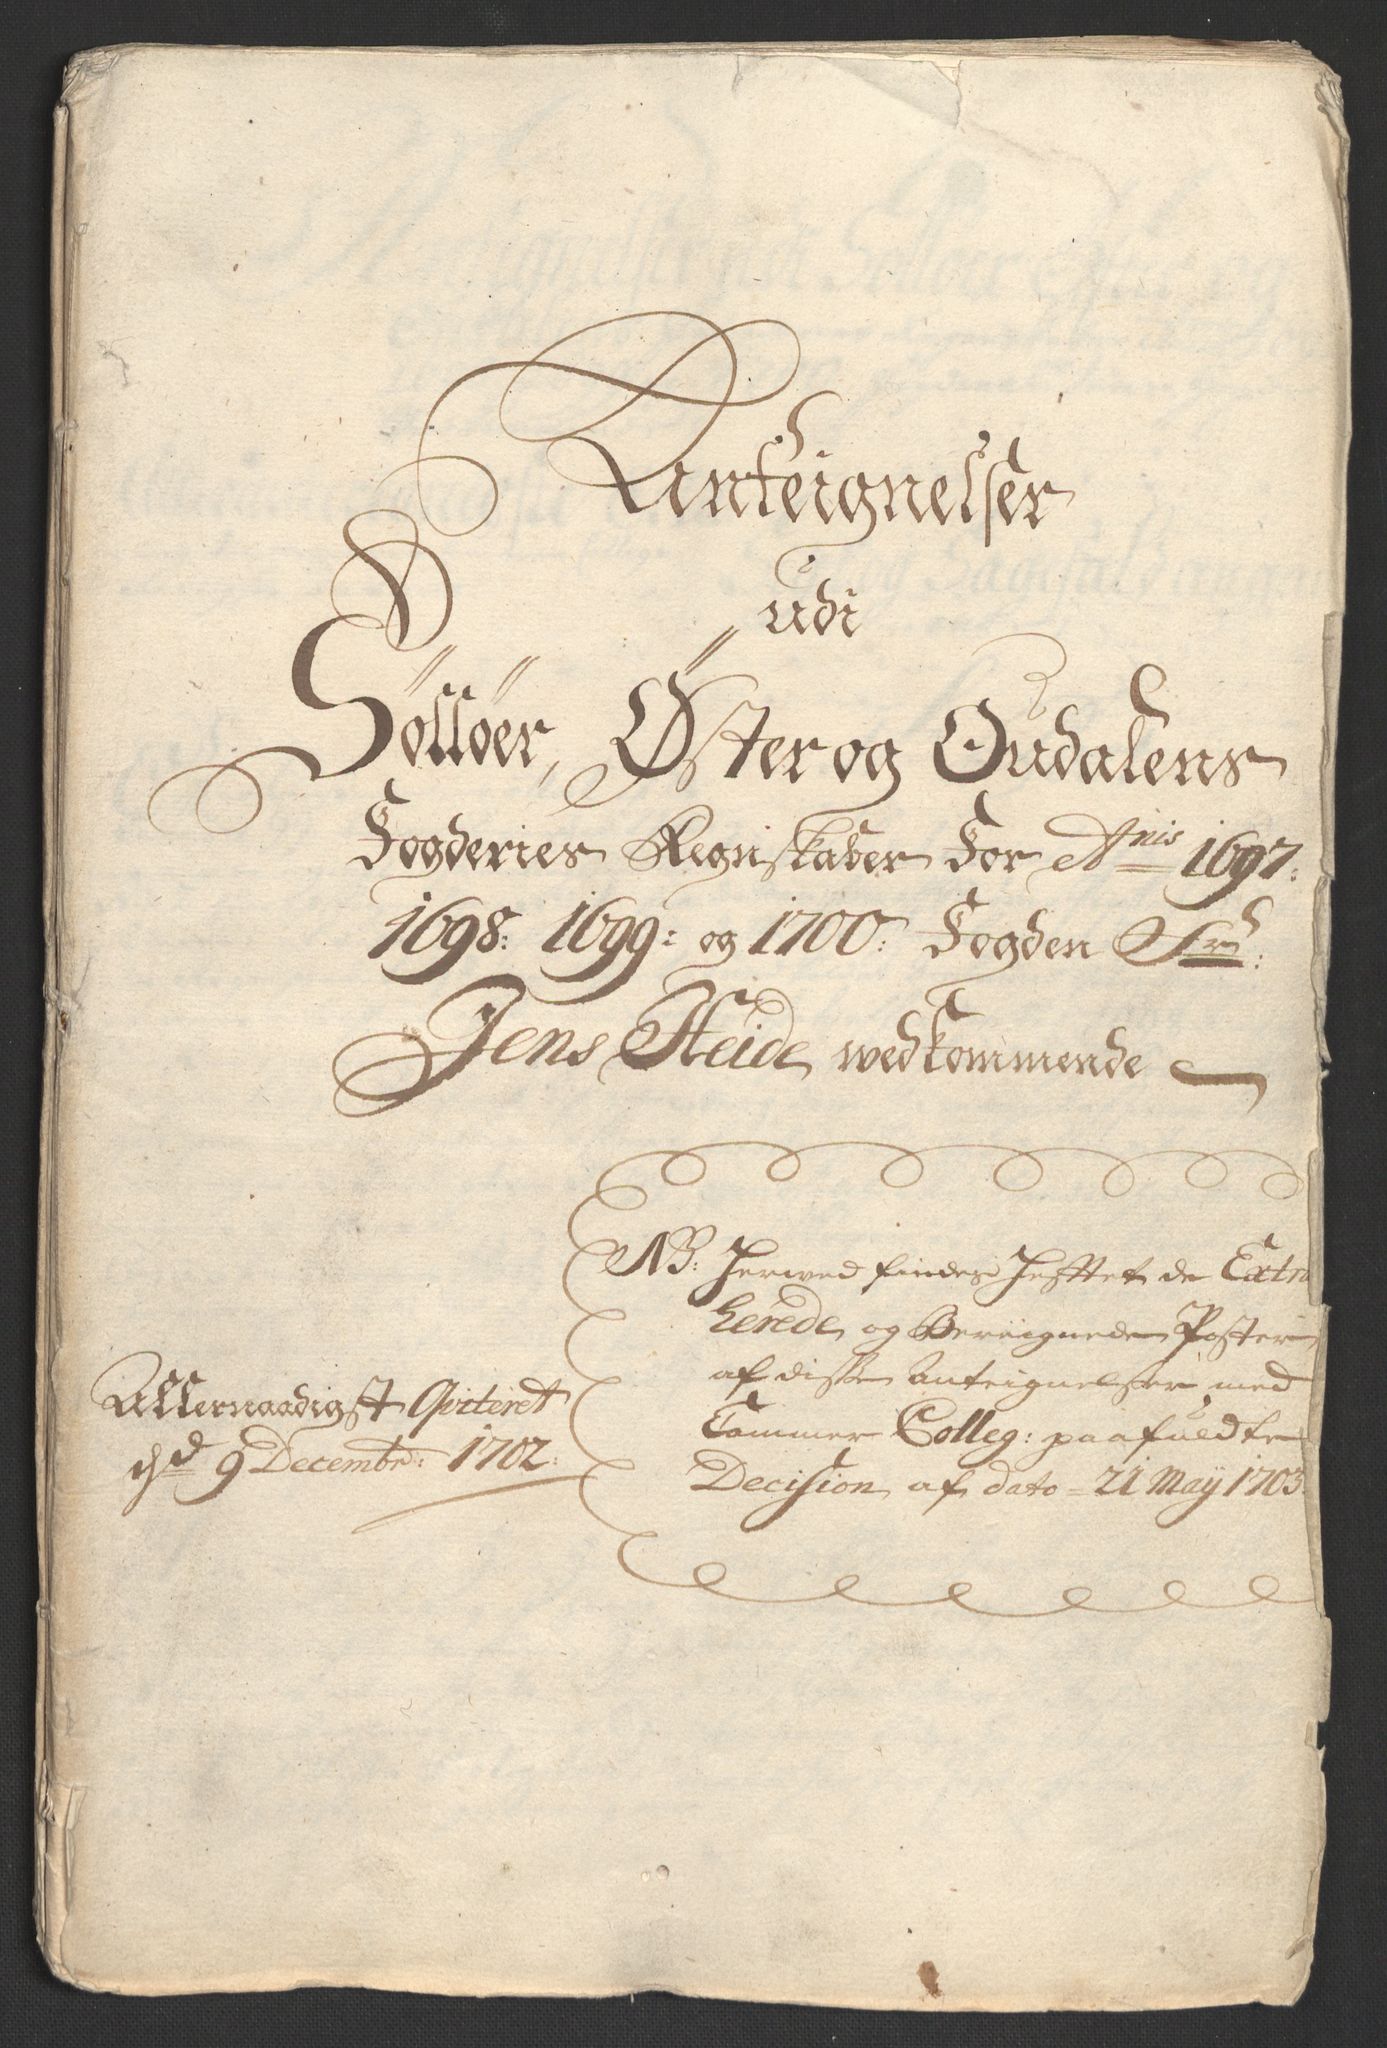 Anteignelser
udi
Sölloer, Øster og Oudalens
Fogderies Regnskaber For Anis 1697:
1698: 1699: og 1700: Fogden Sr:
Jens Heide wedkommende
NB: Herwed findes Hefftet de Extra
herede og Bereignede Poster
af disse Anteignelser med
Cammer Colleg: paafuldte
Decision af dato 21 Maÿ 1703.
Allernaadigst Qviteret
d 9 Decembr: 1702: